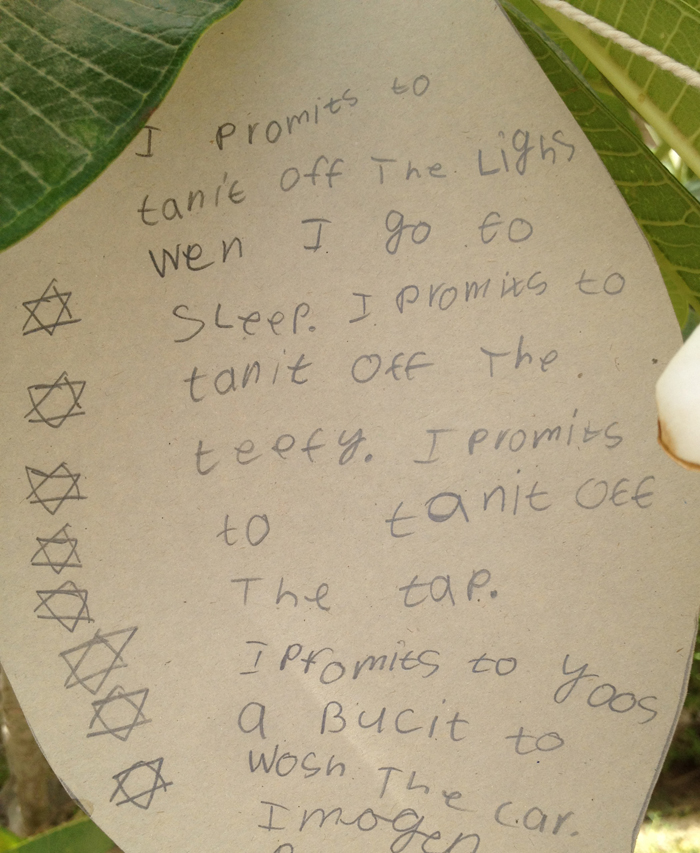 I promits to
tanit off The Lighs
wen I go to
SLeep. I promits to
tanit off The
teefy. I promits
to tanit off
The tap.
I promits to yoos
a Bucit to
wosh The car.
Imogen